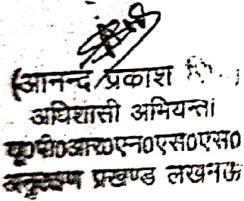 (आनन्द प्रकाश
अधिशासी अभियन्ता
यू0पी0आर0एन0एस0एस0
प्रखण्ड लखनऊ